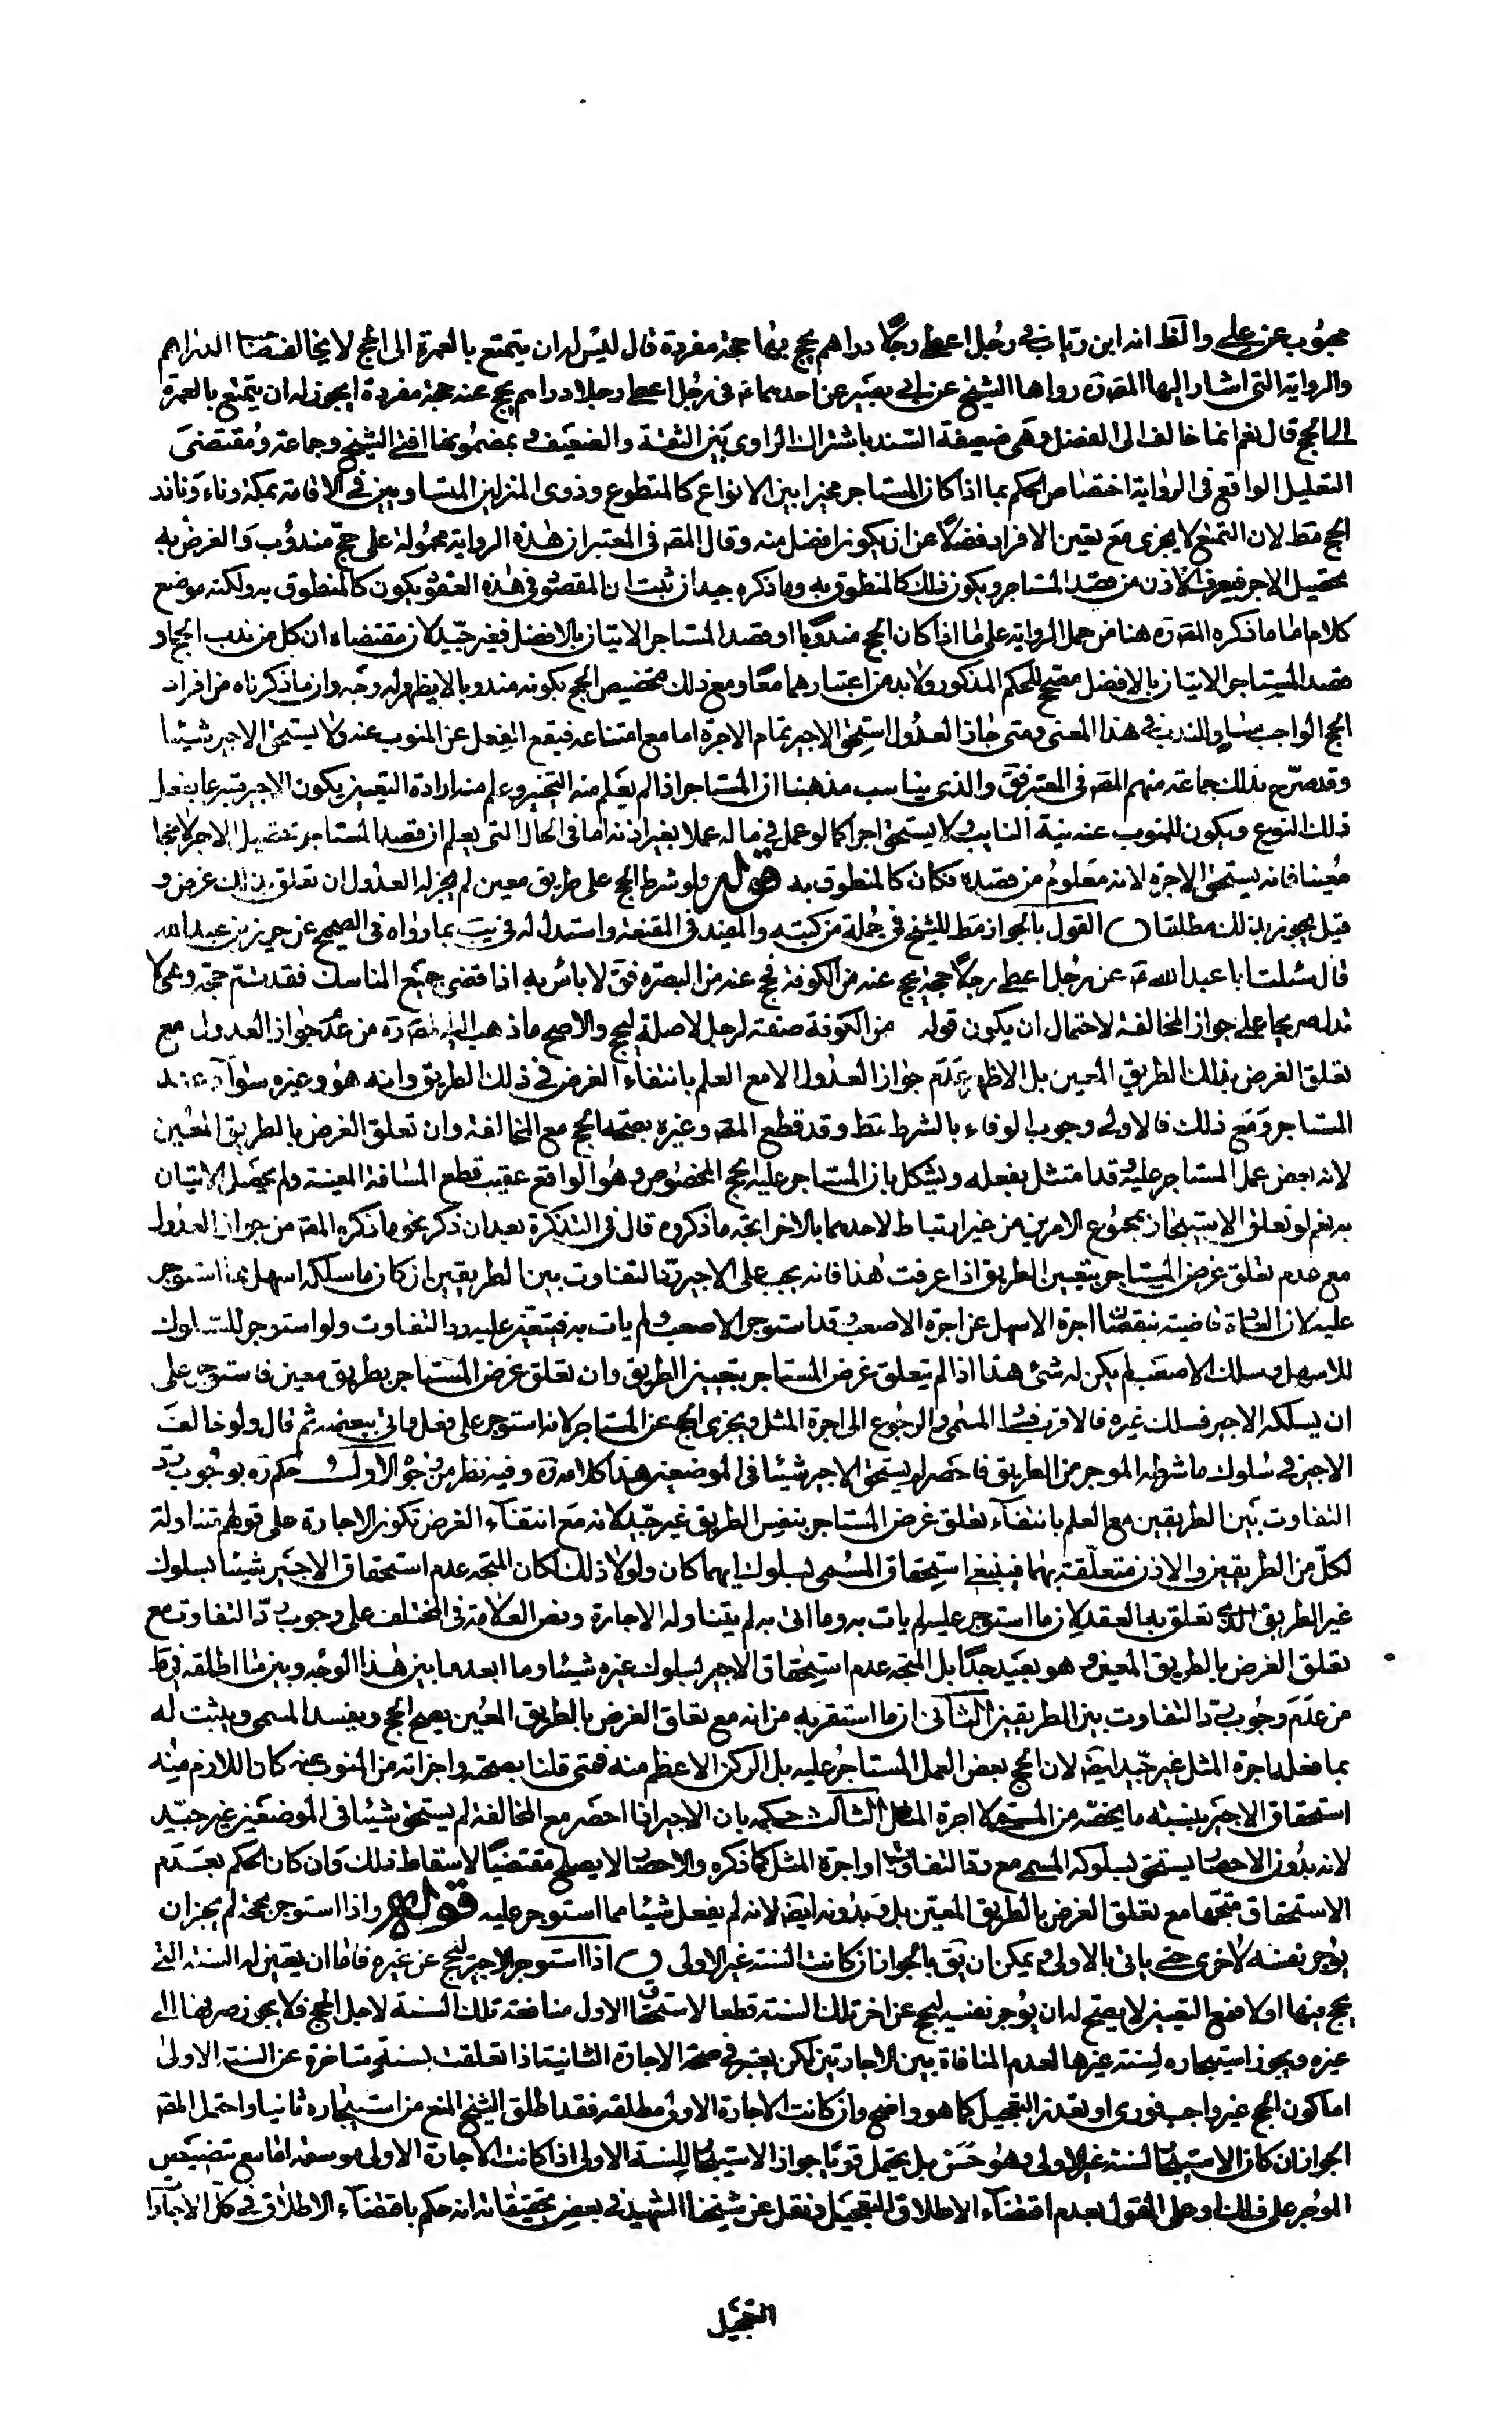 محبوب عن علي والظ انه ابن رباب في رجل اعطى رجلا دراهم يحج بها حجة مفردة قال ليس له ان يتمتع بالعمرة الى الحج لا يخالف صاحب الدراهم
والرواية التى اشار اليها المصره رواها الشيخ عن ابى بصير عن احدهما ع فى رجل اعطى رجلا دراهم يحج عنه حجة مفردة ايجوز له ان يتمتع بالعمرة
الى الحج قال نعم انما خالف الى الفضل وهى ضعيفة السند باشتراك الراوى بين الثقة والضعيف و بمضمونها افتى الشيخ وجماعة ومقتضى
التعليل الواقع فى الرواية اختصاص الحكم بما اذا كان المستاجر مخيرا بين الانواع كالمتطوع وذوى المنزلين المتساويين فى الاقامة بمكة وناء وناذر
الحج مط لان التمتع لا يجزى مع تعين الافراد فضلا عن ان يكون افضل منه وقال المصه فى المعتبر ان هذه الرواية محمولة على حج مندوب والغرض به
تحصيل الاجر فيعرف الاذن من قصد المستاجر ويكون ذلك كالمنطوق به وما ذكره جيد ان ثبت ان المقصود فى هذه العقود يكون كالمنطوق به ولكنه موضع
كلام اما ما ذكره المصره هنا من حمل الرواية على ما اذا كان الحج مندوبا او قصد المستاجر الاتيان بالافضل فغير جيد لان مقتضاه ان كل من ندب الحج او
قصد المستاجر الاتيان بالافضل مصحح للحكم المذكور ولا بد من اعتبارهما معا ومع ذلك تخصيص الحج بكونه مندوبا لا يظهر له وجه وان ما ذكرناه من افراد
الحج الواجب مساو للندب فى هذا المعنى ومتى جاز العدول استحق الاجير تمام الاجرة اما مع امتناعه فيقع الفعل عن المنوب عنه ولا يستحق الاجير شيئا
وقد صرح بذلك جماعة منهم المصه فى المعتبر فق والذى يناسب مذهبنا ان المستاجر اذا لم يعلم منه التخيير وعلم منه ارادة التعيين يكون الاجير متبرعا بفعل
ذلك النوع ويكون للمنوب عنه بنية النايب ولا يستحق اجرا كما لو عمل فى ماله عملا بغير اذنه اما فى الحال التى يعلم ان قصد المستاجر تحصيل الاجر لا حجا
معينا فانه يستحق الاجرة لانه معلوم من قصده فكان كالمنطوق به قوله ولو شرط الحج على طريق معين لم يجز له العدول ان تعلق بذلك غرض و
قيل يجوز بذلك مطلقا القول بالجواز مط للشيخ فى جملة من كتبه والمفيد فى المقنعة واستدل له فى يب بما رواه فى الصحيح عن حريز بن عبد الله
قال سئلت ابا عبد الله ع عن رجل اعطى رجلا حجة يحج عنه من الكوفة فحج عنه من البصرة فق لا باس به اذا قضى جميع المناسك فقد تم حجه وهى لا
تدل صريحا على جواز المخالفة لاحتمال ان يكون قوله من الكوفة صفة لرجل لا صلة ليحج والاصح ما ذهب اليه المصره من عدم جواز العدول مع
تعلق الغرض بذلك الطريق المعين بل الاظهر عدم جواز العدول الا مع العلم بانتفاء الغرض فى ذلك الطريق وانه هو وغيره سواء عند
المستاجر ومع ذلك فالاولى وجوب الوفاء بالشرط مط وقد قطع المصه وغيره بصحة الحج مع المخالفة وان تعلق الغرض بالطريق المعين
لانه بعض عمل المستاجر عليه وقد امتثل بفعله ويشكل بان المستاجر عليه الحج المخصوص وهو الواقع عقيب قطع المسافة المعينة ولم يحصل الاتيان
به نعم لو تعلق الاستيجار بمجموع الامرين من غير ارتباط لاحدهما بالاخر اتجه ما ذكروه قال فى التذكرة بعد ان ذكر نحو ما ذكره المصه من جواز العدول
مع عدم تعلق غرض المستاجر بتعيين الطريق اذا عرفت هذا فانه يجب على الاجير رد التفاوت بين الطريقين ان كان ما سلكه اسهل مما استوجر
عليه لان العادة قاضية بنقصان اجرة الاسهل عن اجرة الاصعب وقد استوجر الاصعب ولم يات به فيتعين عليه رد التفاوت ولو استوجر للسلوك
للاسهل وسلك الاصعب لم يكن له شئ هذا اذا لم يتعلق غرض المستاجر بتعيين الطريق وان تعلق غرض المستاجر بطريق معين فاستوجر على
ان يسلكه الاجير فسلك غيره فالاقرب فساد المسمى والرجوع الى اجرة المثل ويجزى الحج عن المستاجر لانه استوجر على فعل واتى ببعضه ثم قال ولو خالف
الاجير فى سلوك ما شرطه الموجر من الطريق فاحصر لم يستحق الاجير شيئا فى الموضعين هذا كلامه ره وفيه نظر من وجوه الاول حكمه ره بوجوب رد
التفاوت بين الطريقين مع العلم بانتفاء تعلق غرض المستاجر بنفس الطريق غير جيد لانه مع انتفاء الغرض تكون الاجارة على قولهم متناولة
لكل من الطريقين والاذن متعلقة بهما فينبغى استحقاق المسمى بسلوك ايهما كان ولولا ذلك لكان المتجه عدم استحقاق الاجير شيئا بسلوك
غير الطريق الذى تعلق به العقد لان ما استوجر عليه لم يات به وما اتى به لم يتناوله الاجارة ونص العلامة فى المختلف على وجوب رد التفاوت مع
تعلق الغرض بالطريق المعين وهو بعيد جدا بل المتجه عدم استحقاق الاجير بسلوك غيره شيئا وما ابعد ما بين هذا الوجه وبين ما اطلقه فى ط
من عدم وجوب رد التفاوت بين الطريقين الثانى ان ما استقربه من انه مع تعلق الغرض بالطريق المعين يصح الحج ويفسد المسمى ويثبت له
بما فعله اجرة المثل غير جيد ايضا لان الحج بعض العمل المستاجر عليه بل الركن الاعظم منه فمتى قلنا بصحته واجزائه من المنوب عنه كان اللازم منه
استحقاق الاجير بنسبة ما يخصه من المسمى لا اجرة المثل الثالث حكمه بان الاجير اذا احصر مع المخالفة لم يستحق شيئا فى الموضعين غير جيد
لانه بدون الاحصار يستحق بسلوكه المسمى مع رد التفاوت او اجرة المثل كما ذكره والاحصار لا يصلح مقتضيا لاسقاط ذلك وان كان الحكم بعدم
الاستحقاق متجها مع تعلق الغرض بالطريق المعين بل وبدونه ايضا لانه لم يفعل شيئا مما استوجر عليه قوله واذا استوجر بحجة لم يجز ان
يوجر نفسه لاخرى حتى ياتى بالاولى ويمكن ان يق بالجواز ان كانت السنة غير الاولى اذا استوجر الاجير ليحج عن غيره فاما ان يعين له السنة التى
يحج فيها اولا فمع التعيين لا يصح له ان يوجر نفسه ليحج عن اخر تلك السنة قطعا لاستحقاق الاول منافعه تلك السنة لاجل الحج فلا يجوز صرفها الى
غيره ويجوز استيجاره لسنة غيرها لعدم المنافاة بين الاجارتين لكن يعتبر فى صحة الاجارة الثانية اذا تعلقت بسنة متاخرة عن السنة الاولى
اما كون الحج غير واجب فورى او تعذر التعجيل كما هو واضح وان كانت الاجارة الاولى مطلقة فقد اطلق الشيخ المنع من استيجاره ثانيا واحتمل المصه
الجواز ان كان الاستيجار لسنة غير الاولى وهو حسن بل يحتمل قويا جواز الاستيجار للسنة الاولى اذا كانت الاجارة الاولى موسعة اما مع تنصيص
الموجر على ذلك او على القول بعدم اقتضاء الاطلاق التعجيل ونقل عن شيخنا الشهيد فى بعض تحقيقاته انه حكم باقتضاء الاطلاق فى كل الاجارات
التعجيل